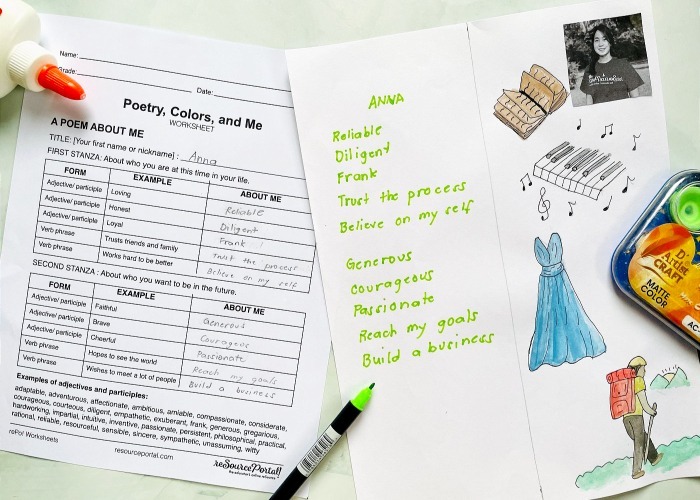 Name:
Grade:
Date:
Poetry, Colors, and Me
WORKSHEET
A POEM ABOUT ME
TITLE: [Your first name or nickname] : Anna
FIRST STANZA: About who you are at this time in your life.
FORM EXAMPLE ABOUT ME
Adjective/ participle Loving Reliable
Adjective/ participle Honest Diligent
Adjective/ participle Loyal Frank
Verb phrase Trusts friends and family Trust the process
Verb phrase Works hard to be better Believe on my self
SECOND STANZA : About who you want to be in the future.
FORM EXAMPLE ABOUT ME
Adjective/ participle Faithful Generous
Adjective/ participle Brave Courageous
Adjective/ participle Cheerful Passionate
Verb phrase Hopes to see the world Reach my goals
Verb phrase Wishes to meet a lot of people Build a business
Examples of adjectives and participles:
adaptable, adventurous, affectionate, ambitious, amiable, compassionate, considerate,
courageous, courteous, diligent, empathetic, exuberant, frank, generous, gregarious,
hardworking, impartial, intuitive, inventive, passionate, persistent, philosophical, practical,
rational, reliable, resourceful, sensible, sincere, sympathetic, unassuming, witty
rePo! Worksheets
resourceportal.com
reSourcePortal!
ANNA
Reliable
Diligent
Frank
Trust the process
Believe on my self
Generous
Courageous
Passionate
Reach my goals
Build a business
Artist
CRAFT
MATTE
COLOR